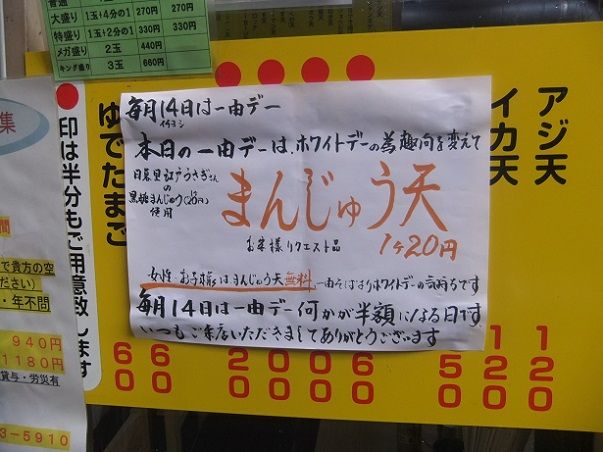 普通
270円
大盛り 1玉+4分の1 270円 270円
特盛り 1玉+2分の1 330円 330円
メガ盛り 2玉 440円
キング盛り 3玉 660円
毎月14日は一由デー
イチヨシ
本日の一由デーは、ホワイトデーの為趣向を変えて
日暮里江戸うさぎさん
の
黒糖まんじゅう
使用
まんじゅう天
お客様リクエスト品
1ケ20円
女性、お子様はまんじゅう天無料
一由そばよりホワイトデーの気持ちです
毎月14日は一由デー何かが半額になる日です
いつもご来店いただきましてありがとうございます
アジ天
120
イカ天
120
50
60
ゆでたまご
60
印は半分もご用意致します
60
集
間
で貴方の空
ださい)
・年不問
940円
1180円
賞与・労災有
3-5910